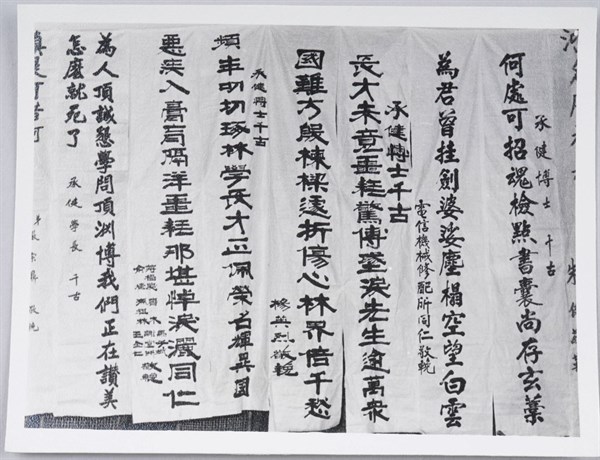 承健博士 千古
何處可招魂檢點書囊尚存玄藁
為君曾挂劍婆娑塵榻空望白雲
電信機械修配所同仁敬輓
承健博士千古
長才未竟噩耗驚傳墜淚先生逾萬眾
國難方殷棟樑遽折傷心林界倍千愁
敬輓
承健博士千古
頻年切切琢林學長才正佩榮名輝異國
惡疾入膏肓隔洋噩耗那堪悼淚灑同仁
敬輓
承健學長 千古
為人頂誠懇學問頂淵博我們正在讚美
怎麼就死了
敬輓